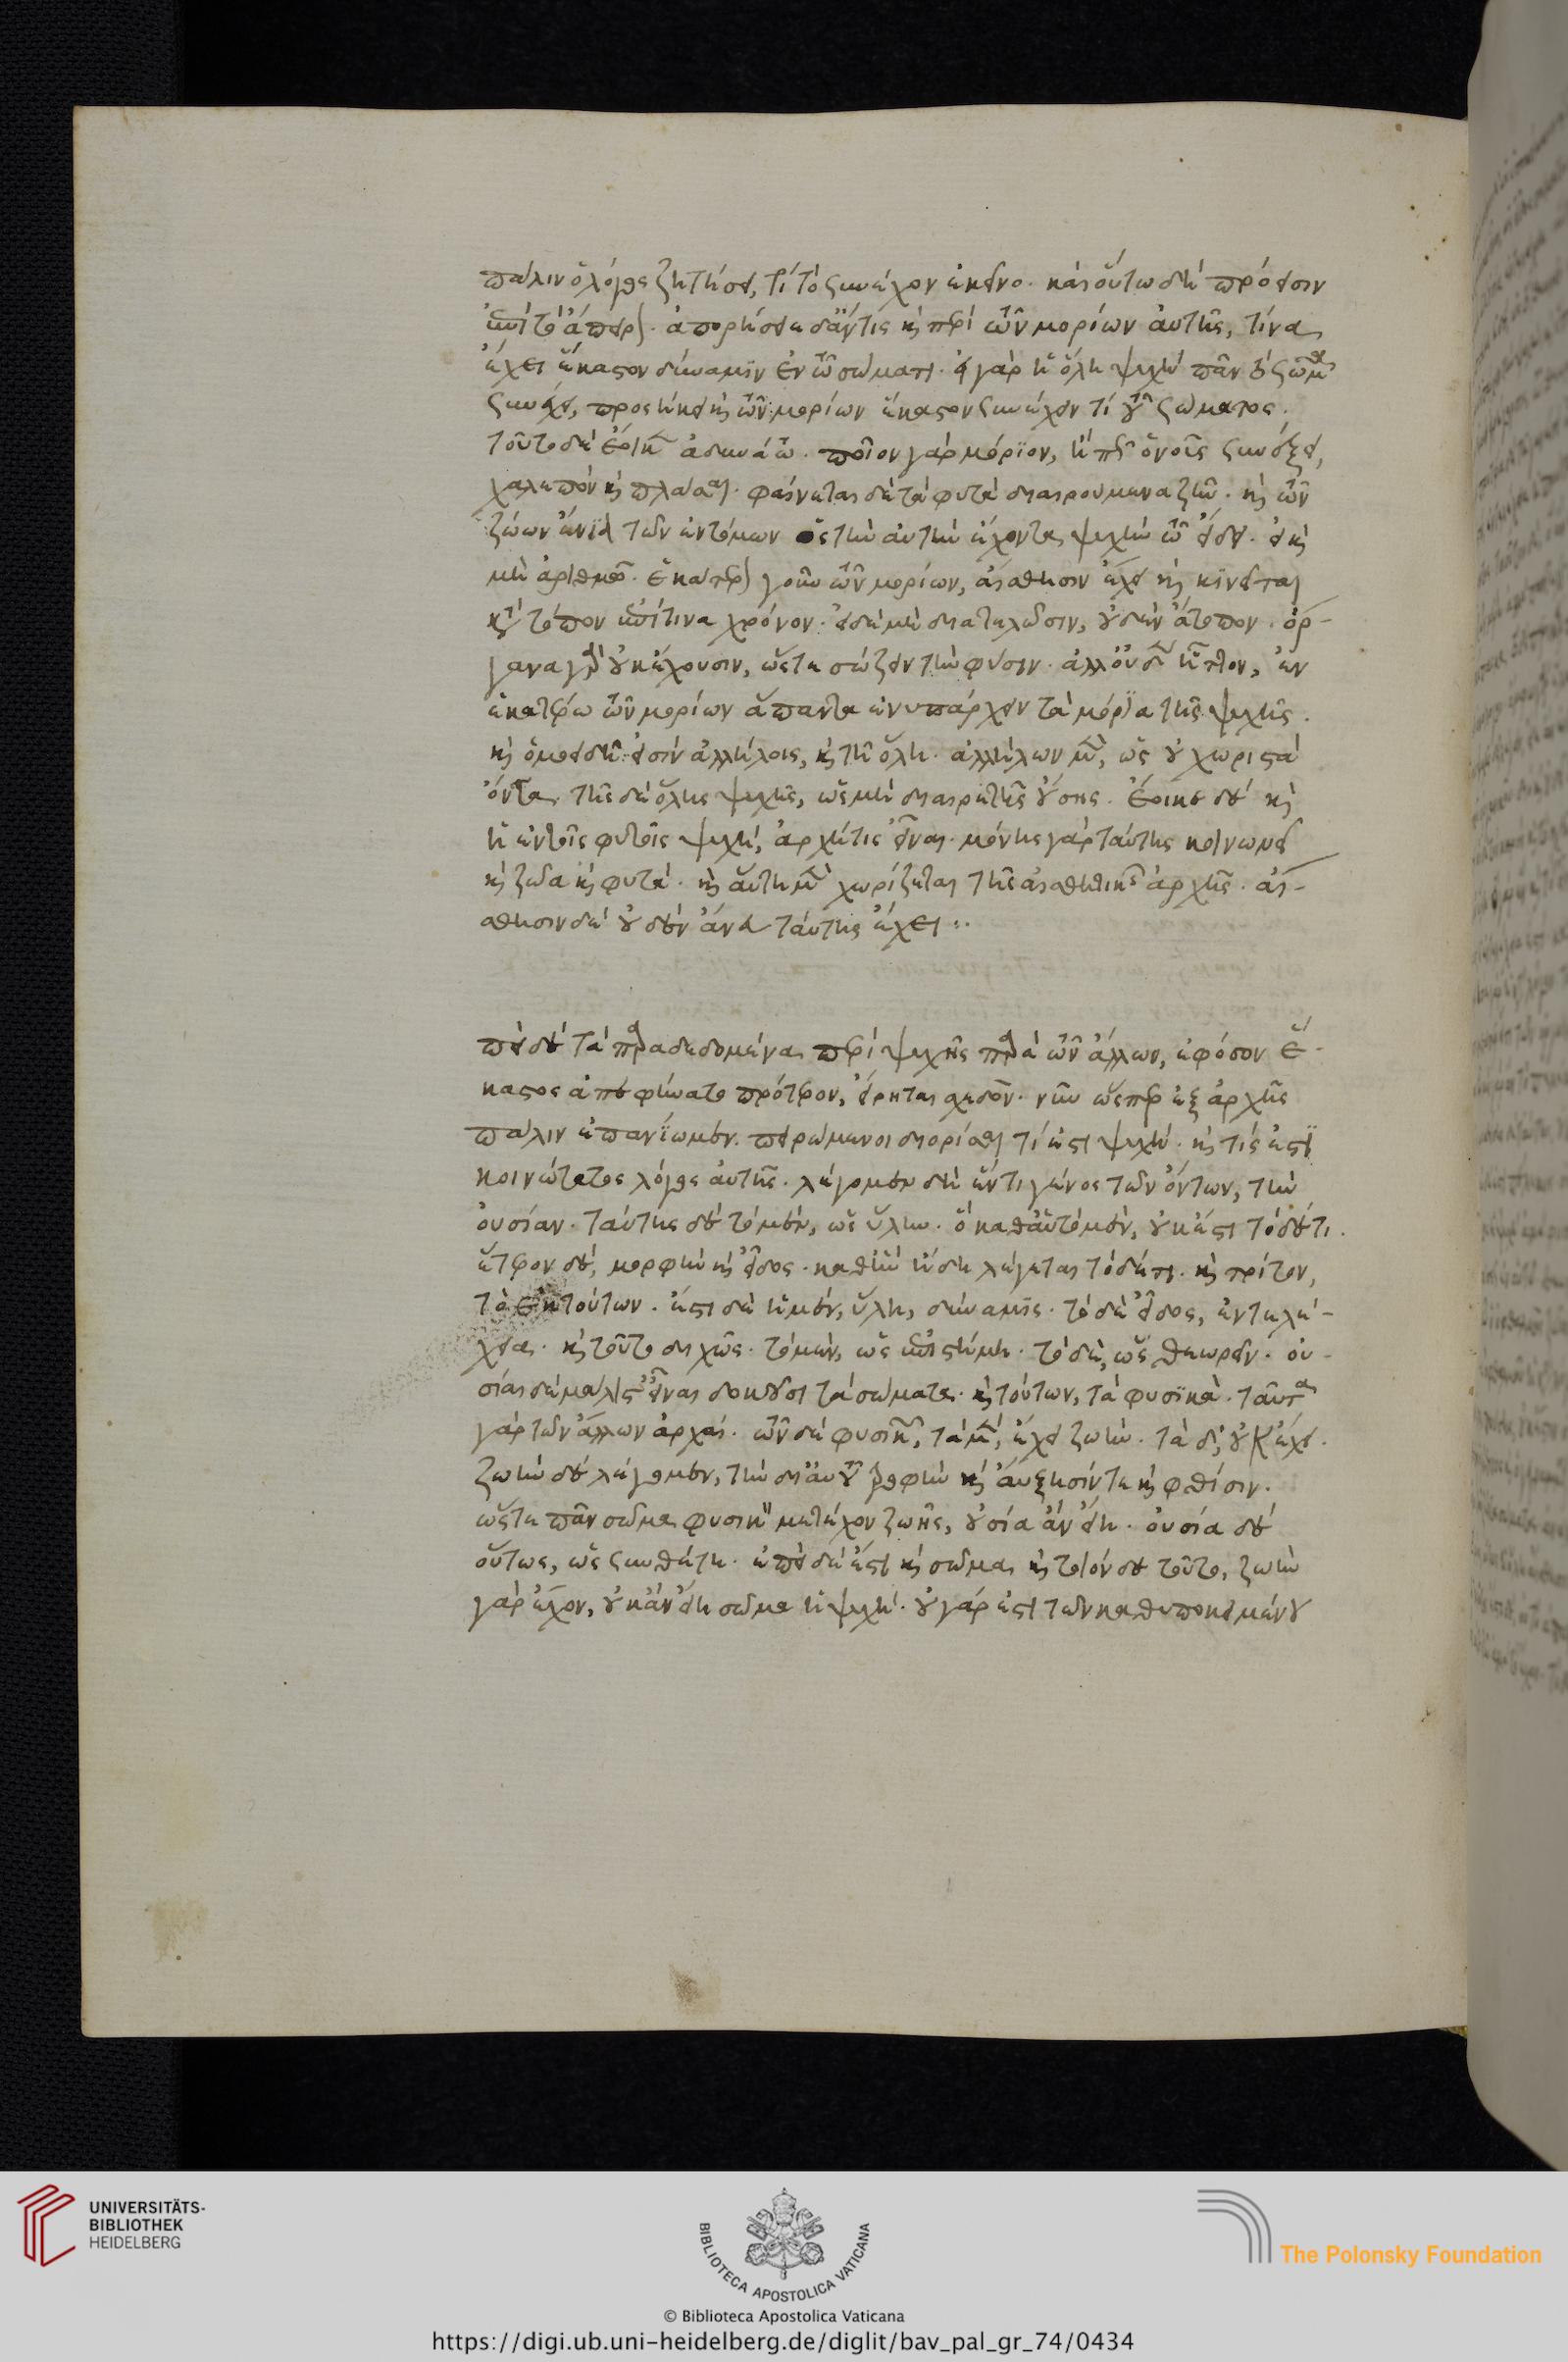 πάλιν ὁ λόγος ζητήσει, τί τὸ συνέχον ἐκεῖνο. καὶ οὕτω δὴ πρόεισιν
ἐπὶ τὸ ἄπειρον. ἀπορήσειε δ' ἄν τις καὶ περὶ τῶν μορίων αὐτῆς, τίνα
ἔχει ἕκαστον δύναμιν ἐν τῷ σώματι. εἰ γὰρ ἡ ὅλη ψυχὴ πᾶν τὸ σῶμα
συνέχει, προσήκει καὶ τῶν μορίων ἕκαστον συνέχειν τὶ τοῦ σώματος.
τοῦτο δὲ ἔοικεν ἀδυνάτῳ. ποῖον γὰρ μόριον, ἢ πῶς ὁ νοῦς συνέξει,
χαλεπὸν καὶ πλάσαι. φαίνεται δὲ τὰ φυτὰ διαιρούμενα ζῆν. καὶ τῶν
ζώων ἔνια τῶν ἐντόμων ὡς τὴν αὐτὴν ἔχοντα ψυχὴν τῷ εἴδει. εἰ καὶ
μὴ ἀριθμῷ. ἑκάτερον γοῦν τῶν μορίων, αἴσθησιν ἔχει καὶ κινεῖται
κατὰ τόπον ἐπί τινα χρόνον. εἰ δὲ μὴ διατελοῦσιν, οὐδὲν ἄτοπον. ὄρ-
γανα γὰρ οὐκ ἔχουσιν, ὥστε σώζειν τὴν φύσιν. ἀλλ' οὐδὲν ἧττον, ἐν
ἑκατέρῳ τῶν μορίων ἅπαντα ἐνυπάρχειν τὰ μόρια τῆς ψυχῆς.
καὶ ὁμοειδῆ εἰσὶν ἀλλήλοις, καὶ τῇ ὅλῃ. ἀλλήλων μὲν, ὡς οὐ χωριστὰ
ὄντα, τῆς δὲ ὅλης ψυχῆς, ὡς μὴ διαιρετῆς οὔσης. ἔοικε δὲ καὶ
ἡ ἐν τοῖς φυτοῖς ψυχὴ, ἀρχή τις εἶναι. μόνης γὰρ ταύτης κοινωνεῖ
καὶ ζῶα καὶ φυτά. καὶ αὕτη μὲν χωρίζεται τῆς αἰσθητικῆς ἀρχῆς. αἴ-
σθησιν δὲ οὐδὲν ἄνευ ταύτης ἔχει :.
πεὶ δὲ τὰ παραδεδομένα περὶ ψυχῆς παρὰ τῶν ἄλλων, ἐφόσον ἕ-
καστος ἀπεφήνατο πρότερον, εἴρηται σχεδόν. νῦν ὥσπερ ἐξ ἀρχῆς
πάλιν ἐπανίωμεν. πειρώμενοι διορίσαι τί ἐστι ψυχή. καὶ τίς ἐστι
κοινότατος λόγος αὐτῆς. λέγομεν δὴ ἕν τι γένος τῶν ὄντων, τὴν
οὐσίαν. ταύτης δὲ τὸ μὲν, ὡς ὕλην. ὃ καθ' αὑτὸ μὲν, οὐκ ἔστι τόδε τι.
ἕτερον δὲ, μορφὴν καὶ εἶδος. καθ' ἣν ἤδη λέγεται τόδε τι. καὶ τρίτον,
τὸ ἐκ τούτων. ἔστι δὲ ἡ μὲν, ὕλη, δύναμις. τὸ δὲ εἶδος, ἐντελέ-
χεια. καὶ τοῦτο διχῶς. τὸ μὲν, ὡς ἐπιστήμη. τὸ δὲ, ὡς θεωρεῖν. οὐ-
σίαι δὲ μάλιστ' εἶναι δοκοῦσι τὰ σώματα. καὶ τούτων, τὰ φυσικά. ταῦτα
γὰρ τῶν ἄλλων ἀρχαί. τῶν δὲ φυσικῶν, τὰ μὲν, ἔχει ζωήν. τὰ δ', οὐκ ἔχει.
ζωὴν δὲ λέγομεν, τὴν δι' αὐτοῦ τροφὴν καὶ αὔξησίν τε καὶ φθίσιν.
ὥστε πᾶν σῶμα φυσικὸν μετέχον ζωῆς, οὐσία ἂν εἴη. οὐσία δὲ
οὕτως, ὡς συνθέτη. ἐπεὶ δέ ἐστι καὶ σῶμα καὶ τοιόνδε τοῦτο, ζωὴν
γὰρ ἔχον, οὐκ ἂν εἴη σῶμα ἡ ψυχή. οὐ γάρ ἐστι τῶν καθ' ὑποκειμένου
UNIVERSITÄTS-
BIBLIOTHEK
HEIDELBERG
BIBLIOTECA APOSTOLICA VATICANA
The Polonsky Foundation
© Biblioteca Apostolica Vaticana
https://digi.ub.uni-heidelberg.de/diglit/bav_pal_gr_74/0434